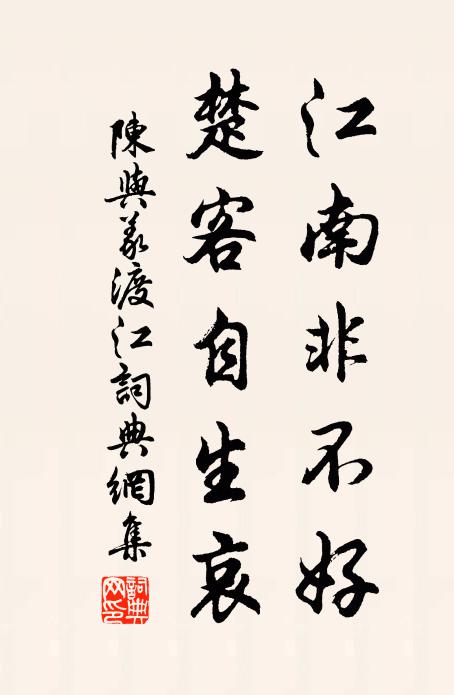 江南非不好
楚客自生哀
陳與義渡江詞典網集
詞典網印